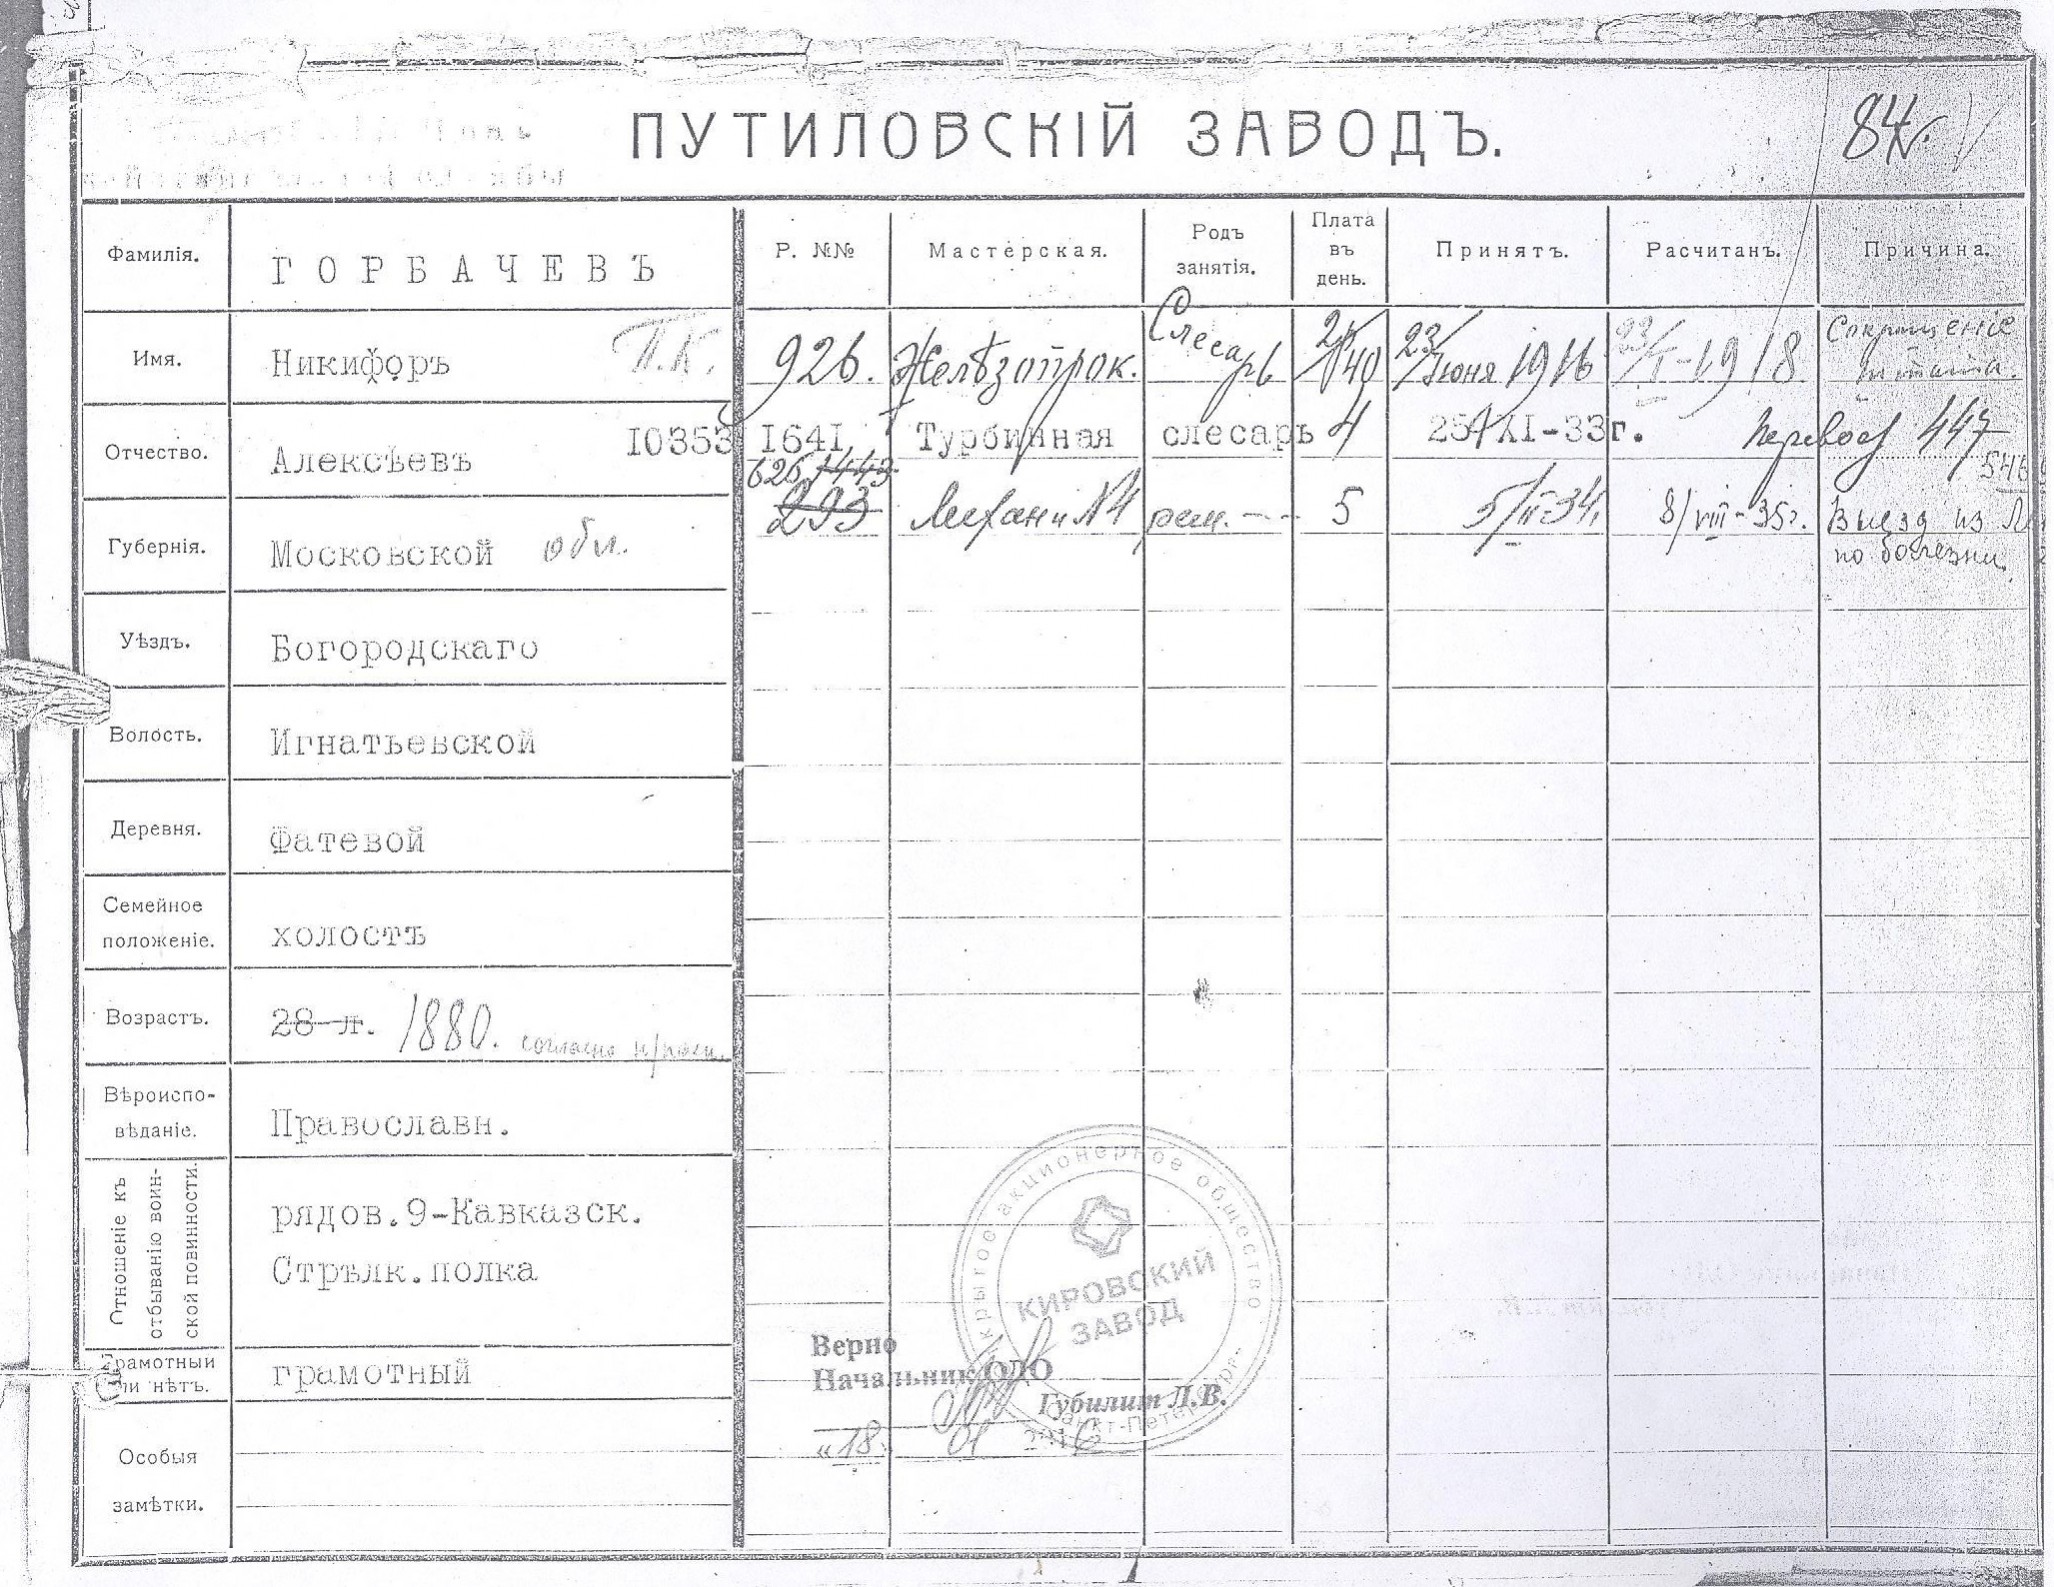 ПУТИЛОВСКІЙ ЗАВОДЪ.
84
Фамилія.
ГОРБАЧЕВЪ
Р. №№
Мастерская.
Родъ занятія.
Плата въ день.
Принятъ.
Расчитанъ.
Причина.
Имя.
Никифоръ
П.К.
926.
Желѣзопрок.
Слесарь
23/Июня 1916
23/I-1918
Сокращеніе штата.
Отчество.
Алексѣевъ
10353
1641
Турбинная
слесарь
4
25/XI-33г.
Перевод 447
546
626 1443
293
Механ № 1
рем.
5
5/II-34.
8/VIII-35г.
Выезд из Л
по болезни.
Губернія.
Московской обл.
Уѣздъ.
Богородскаго
Волость.
Игнатьевской
Деревня.
Фатевой
Семейное положеніе.
холостъ
Возрастъ.
28 л. 1880. согласно
Вѣроиспо-
вѣданіе.
Православн.
Отношеніе къ
отбыванію воин-
ской повинности.
рядов.9-Кавказск.
Стрѣлк.полка
Грамотный
или нѣтъ.
грамотный
Особыя
замѣтки.
акционерное общество
КИРОВСКИЙ
ЗАВОД
Санкт-Петербург
Верно
Начальник ОДО
Губилит Л.В.
"18" 01 2016